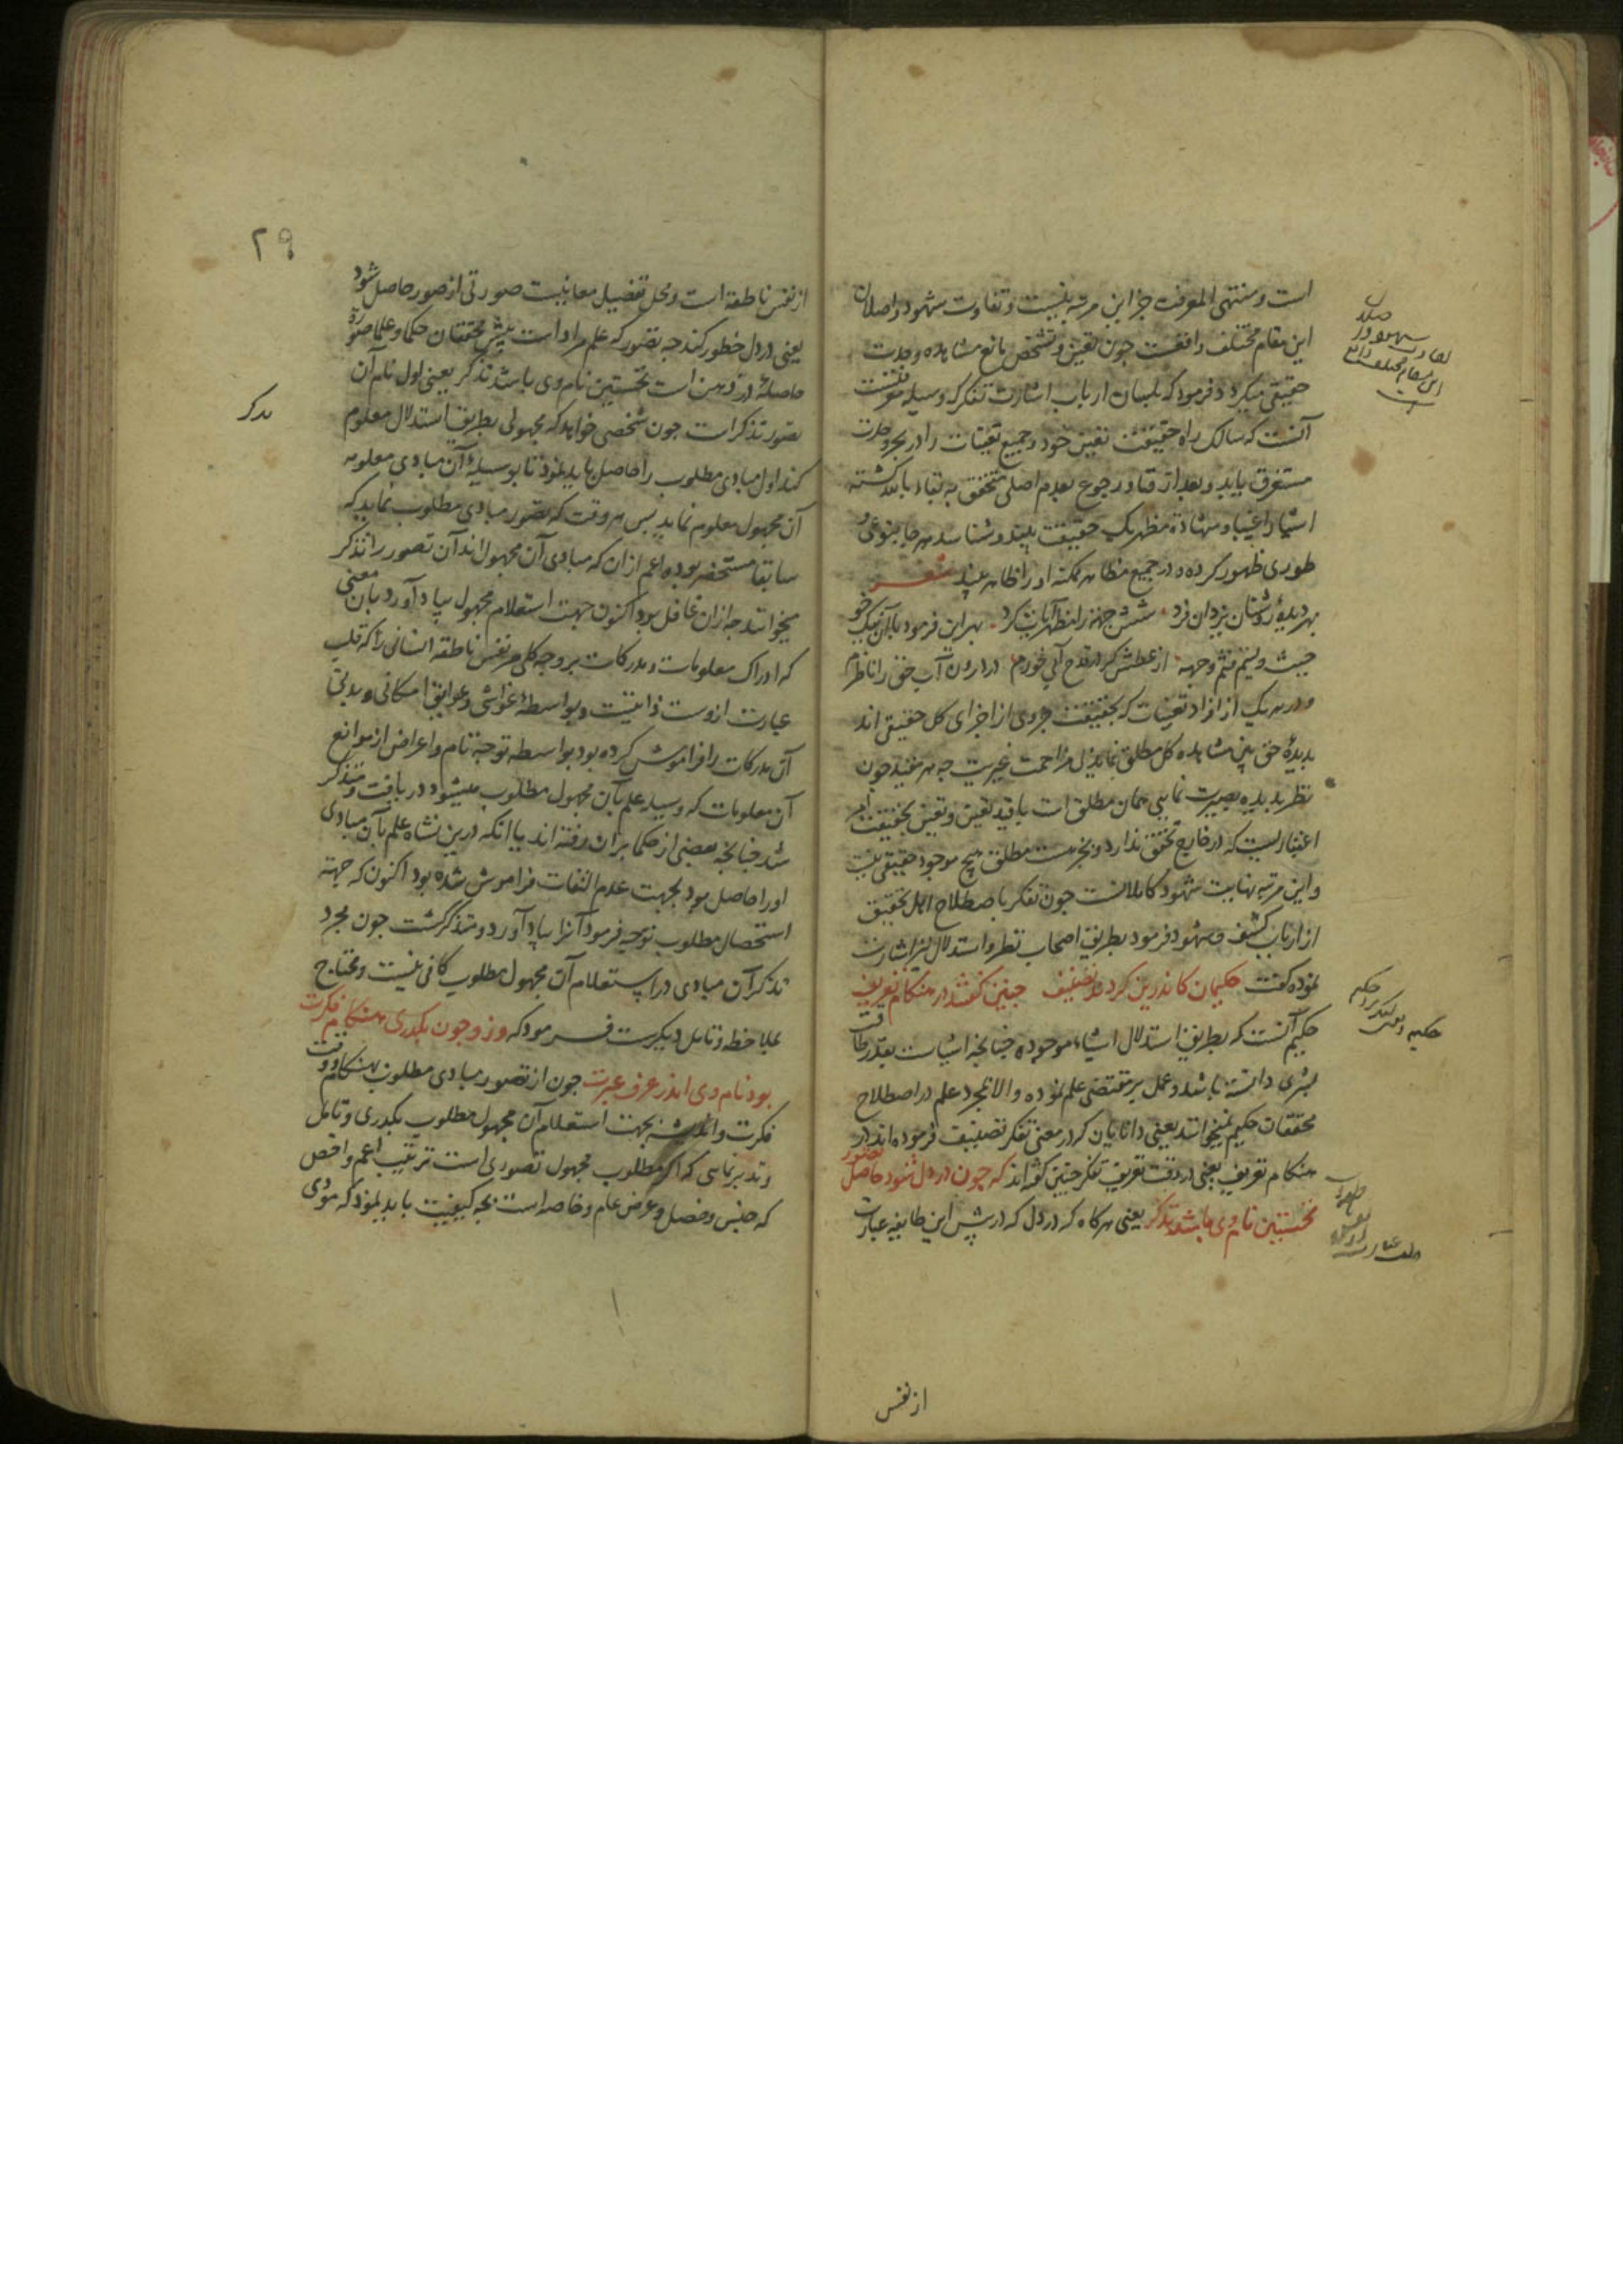 است و منتهی المعرفت جز این مرتبه نیست و تفاوت شهود واصلان
این مقام مختلف واقعست چون تعین و تشخص مانع مشاهده وحدت
حقیقی میکردد فرمود که بلسان ارباب اشارت تفکر که وسیله معرفتست
آنست که سالک راه حقیقت تعین خود و جمیع تعینات را در بحر وحدت
مستغرق یابد و بعد از فنا و رجوع بعدم اصلی متحقق به بقاء بالله کشته
اشیا را غیبا و شهادة مظهر یک حقیقت بیند و شناسد هر جا بنوعی و
طوری ظهور کرده و در جمیع مظاهر ممکنه او را ظاهر بیند شعر
بهر دیدهٔ روشنان یزدان فرد شش جهة را مظهر آیات کرد بهر این فرمود با آن نیک خو
حیث ولیتم فثم وجهه از عطش کر در قدح آبی خورم در درون آب حق را ناظرم
و در هر یک از افراد تعینات که بحقیقت جزوی از اجزای کل حقیقی اند
بدیدهٔ حق بین مشاهده کل مطلق نماید بی مزاحمت غیریت چه هر مقید چون
نظر بدیده بصیرت نمایی همان مطلق است با قید تعین و تعین بحقیقت امر
اعتباریست که در خارج تحقق ندارد و بجز هست مطلق هیچ موجود حقیقی نیست
و این مرتبه نهایت شهود کاملانست چون تفکر باصطلاح اهل تحقیق
از ارباب کشف و شهود فرمود بطریق اصحاب نظر و استدلال نیز اشارت
نموده کفت حکیمان کاندرین کردند تصنیف چنین کفتند در هنکام تعریف
حکیم آنست که بطریق استدلال اشیاء موجوده چنانچه اشیاست بقدر طاقت
بشری دانسته باشد و عمل بر مقتضی علم نموده والا بمجرد علم در اصطلاح
محققان حکیم نمیخوانند یعنی دانایان که در معنی تفکر تصنیف فرموده اند در
هنکام تعریف یعنی در وقت تعریف تفکر چنین کفته اند که چون در دل شود حاصل تصور
نخستین نام وی باشد تذکر یعنی هر کاه که در دل که در پیش این طایفه عبارت
از نفس
۲۹
از نفس ناطقه است و محل تفصیل معانیست صورتی از صور حاصل شود
یعنی در دل خطور کند چه تصور که علم مراد است پیش محققان حکما و علما صورة
حاصلهٔ در ذهن است نخستین نام وی باشد تذکر یعنی اول نام آن
تصور تذکر است چون شخصی خواهد که مجهولی بطریق استدلال معلوم
کند اول مبادی مطلوب را حاصل باید نمود تا بوسیلهٔ آن مبادی معلومه
آن مجهول معلوم نماید پس هر وقت که تصور مبادی مطلوب نماید که
سابقا مستحضر بوده اعم از آن که مبادی آن مجهول اند آن تصور را تذکر
میخوانند چه از آن غافل بود اکنون جهت استعلام مجهول بیاد آورد بآن معنی
که ادراک معلومات و مدرکات بر وجه کلی مر نفس ناطقه انسانی را که قلب
عبارت ازوست ذاتیست و بواسطهٔ غواشی و عوایق امکانی و بدنی
آن مدرکات را فراموش کرده بود بواسطه توجه تام و اعراض از موانع
آن معلومات که وسیله علم بآن مجهول مطلوب میشود دریافت و متذکر
شد چنانچه بعضی از حکما بر آن رفته اند یا آنکه درین نشاه علم بآن مبادی
او را حاصل بود بجهت عدم التفات فراموش شده بود اکنون که جهة
استحصال مطلوب توجه فرمود آنرا بیاد آورد و متذکر کشت چون مجرد
تذکر آن مبادی در استعلام آن مجهول مطلوب کافی نیست و محتاج
بملاحظه و تامل دیکرست فرمود که وزو چون بکذری هنکام فکرت
بود نام وی اندر عرف عبرت چون از تصور مبادی مطلوب بهنکام و وقت
فکرت و اندیشه بجهت استعلام آن مجهول مطلوب بکذری و تامل
و تدبر نمایی که اکر مطلوب مجهول تصوری است ترتیب اعم و اخص
که جنس و فصل و عرض عام و خاصه است بچه کیفیت باید نمود که مؤدی